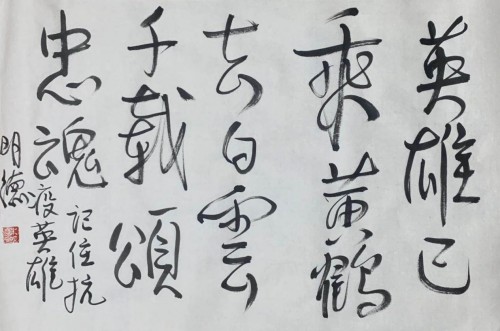 英雄已
乘黄鶴
去白雲
千載頌
忠魂
记住抗
疫英雄
明德